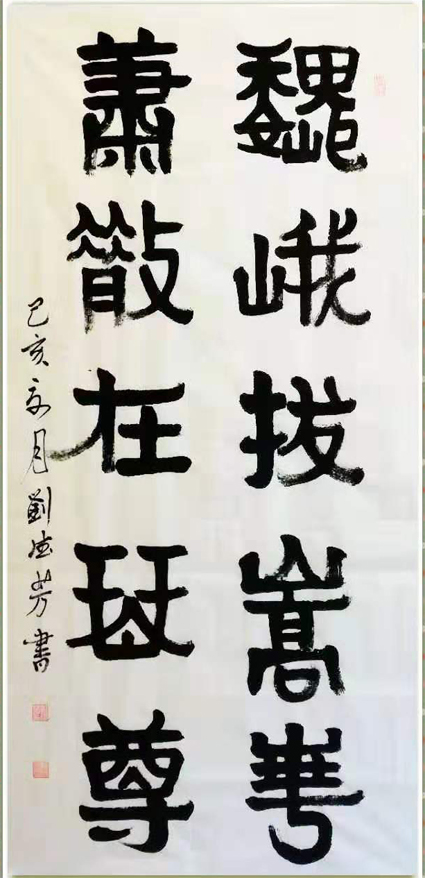 巍峨拔嵩華
蕭散在琴尊
己亥月劉德芳書